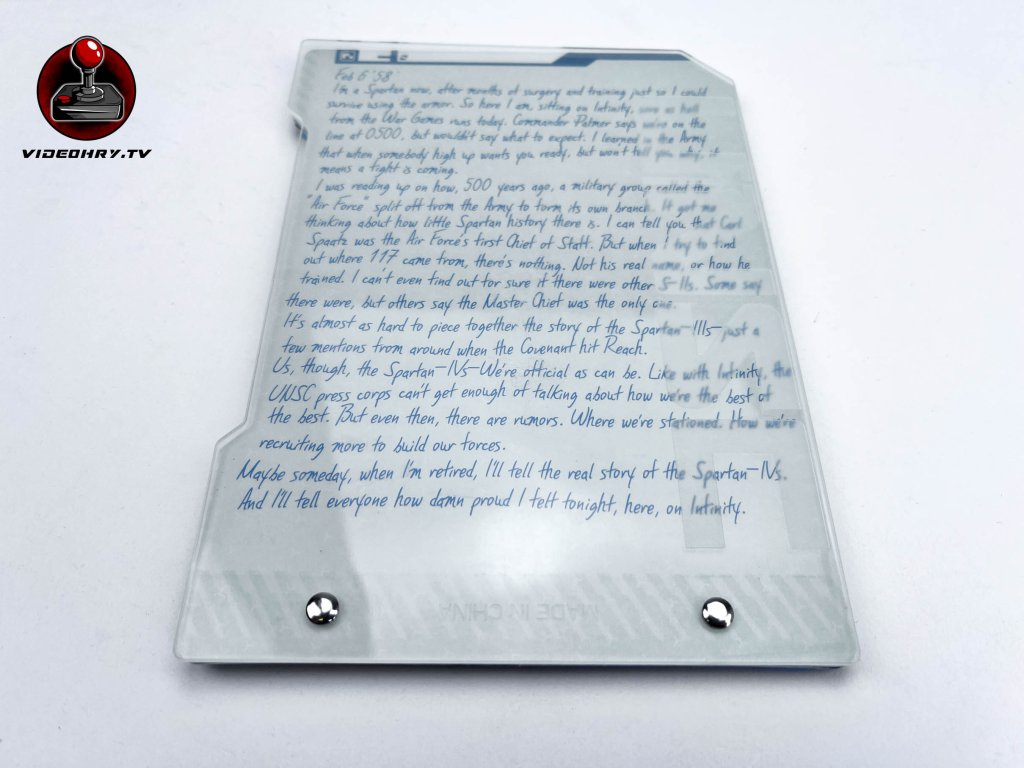 VIDEOHRY.TV
Feb 6 '58
I'm a Spartan now, after months of surgery and training just so I could
survive using the armor. So here I am, sitting on Infinity, sore as hell
from the War Games runs today. Commander Palmer says we're on the
line at 0500, but wouldn't say what to expect. I learned in the Army
that when somebody high up wants you ready, but won't tell you why, it
means a fight is coming.
I was reading up on how, 500 years ago, a military group called the
"Air Force" split off from the Army to form its own branch. It got me
thinking about how little Spartan history there is. I can tell you that Carl
Spaatz was the Air Force's first Chief of Staff. But when I try to find
out where 117 came from, there's nothing. Not his real name, or how he
trained. I can't even find out for sure if there were other S-IIs. Some say
there were, but others say the Master Chief was the only one.
It's almost as hard to piece together the story of the Spartan-IIIs-just a
few mentions from around when the Covenant hit Reach.
Us, though, the Spartan-IVs-We're official as can be. Like with Infinity, the
UNSC press corps can't get enough of talking about how we're the best of
the best. But even then, there are rumors. Where we're stationed. How we're
recruiting more to build our forces.
Maybe someday, when I'm retired, I'll tell the real story of the Spartan-IVs.
And I'll tell everyone how damn proud I felt tonight, here, on Infinity.
MADE IN CHINA